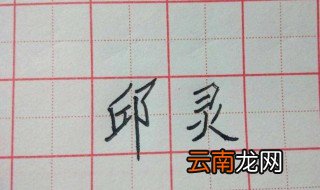 邱灵
云南龙网